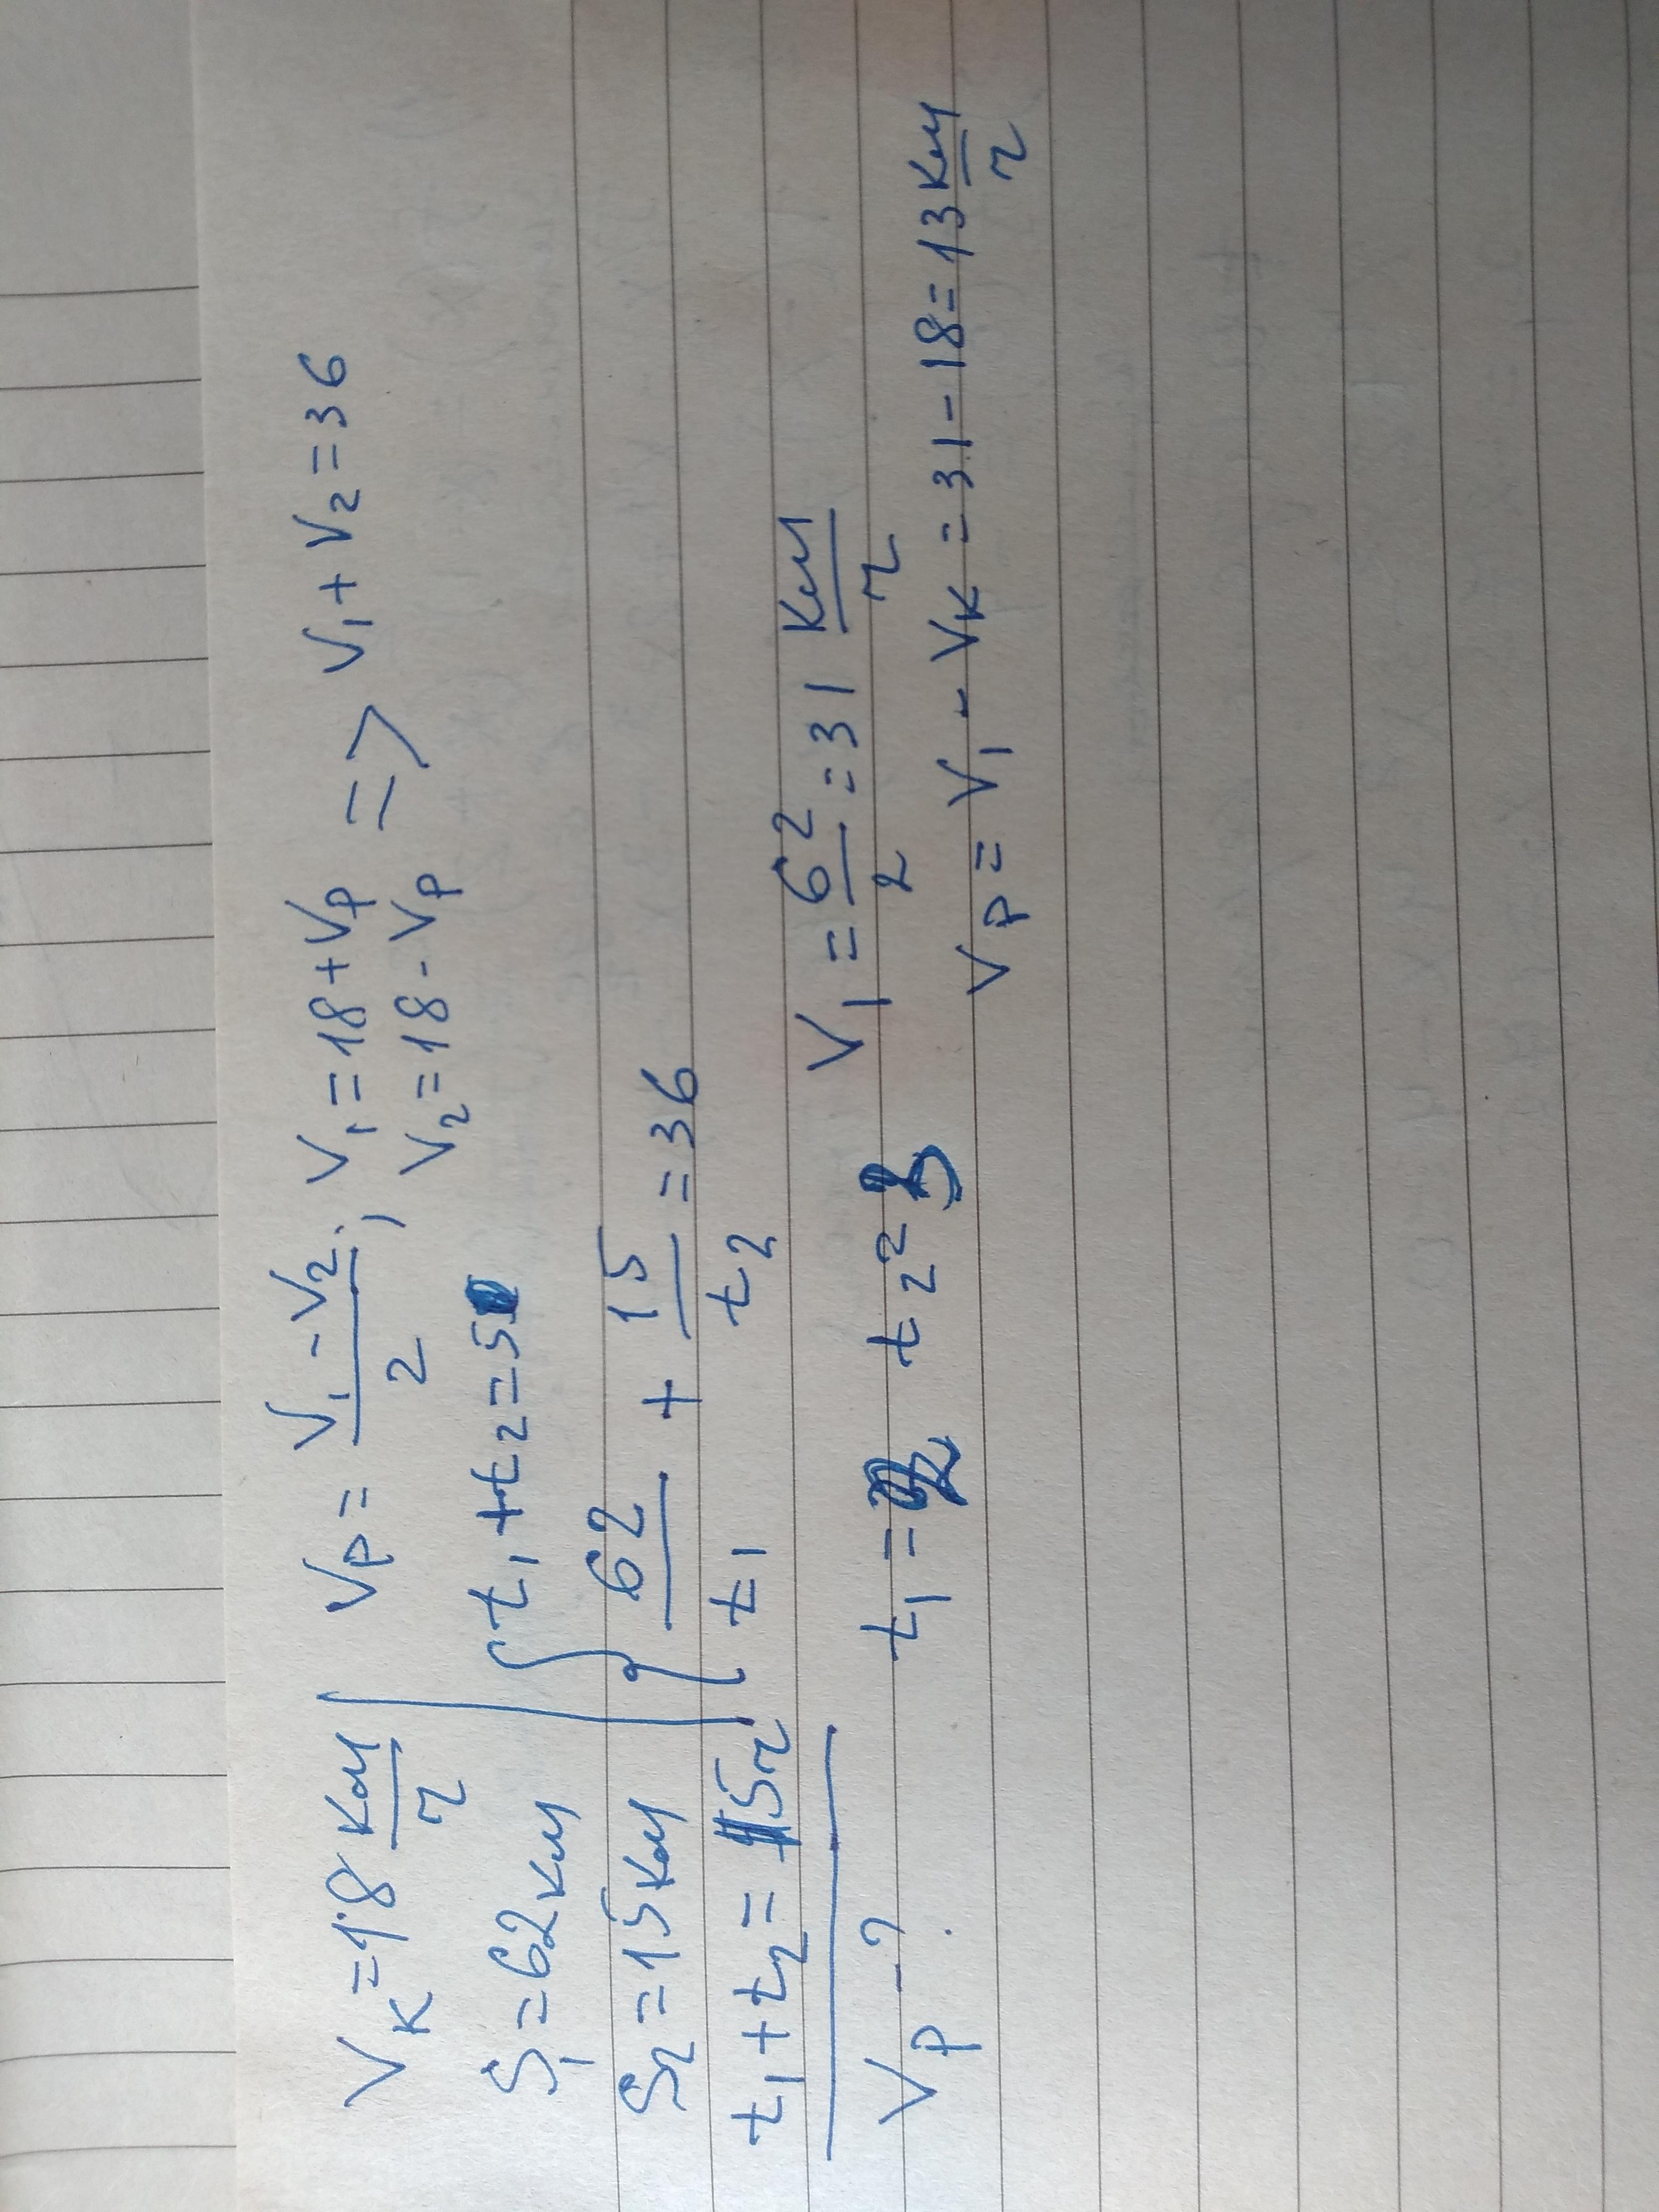 Vк = 18 км/г
S₁ = 62 км
S₂ = 15 км
t₁ + t₂ = 5г
Vр - ?
Vр = (V₁ - V₂)/2; V₁ = 18 + Vр
V₂ = 18 - Vр
=> V₁ + V₂ = 36
t₁ + t₂ = 5
62/t₁ + 15/t₂ = 36
t₁ = 2 t₂ = 3
V₁ = 62/2 = 31 км/г
Vр = V₁ - Vк = 31 - 18 = 13 км/г